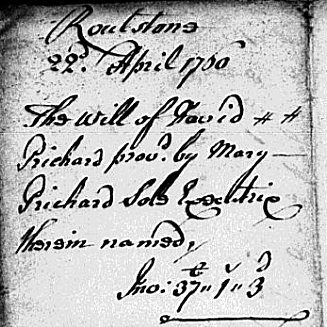 Roulstone
22d. April 1760
The Will of David
Prichard provd. by Mary
Prichard Sole Executrix
therein named,
Ino: 37„1„3